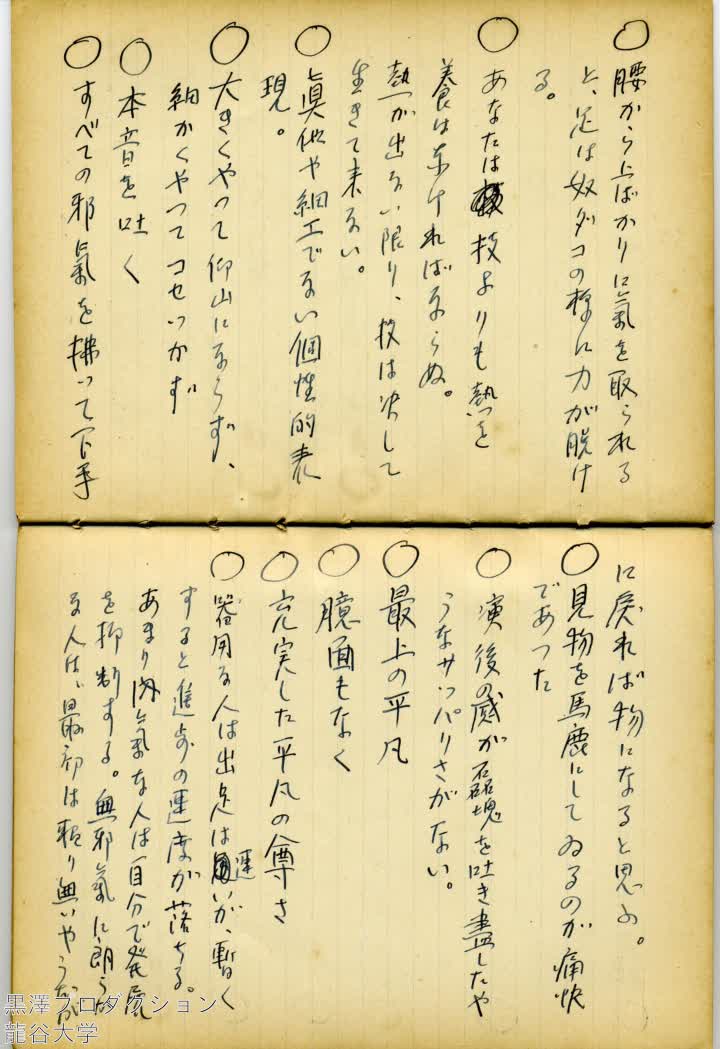 ○腰から上ばかりに氣を取られる
と、足は奴ダコの様に力が脱け
る。
○あなたは技よりも熱を
養は なければならぬ。
熱が出ない限り、技は决して
生きて来ない。
○眞似や細工でない個性的表
現。
○大きくやって仰山にならず、
細かくやってコセつかず
○本音を吐く
○すべての邪氣を拂って下手
に戻れば物になると思ふ。
○見物を馬鹿にしてゐるのが痛快
であつた
○演後の感が磊塊を吐き盡したや
うなサッパリさがない。
○最上の平凡
○臆面もなく
○充実した平凡の尊さ
○器用な人は出足は速いが、暫く
すると進歩の速度が落ちる。
あまり内氣な人は自分で発展
を抑制する。無邪氣に朗らか
な人は、最初は頼り無いやうだが
黒澤プロダクション
龍谷大学